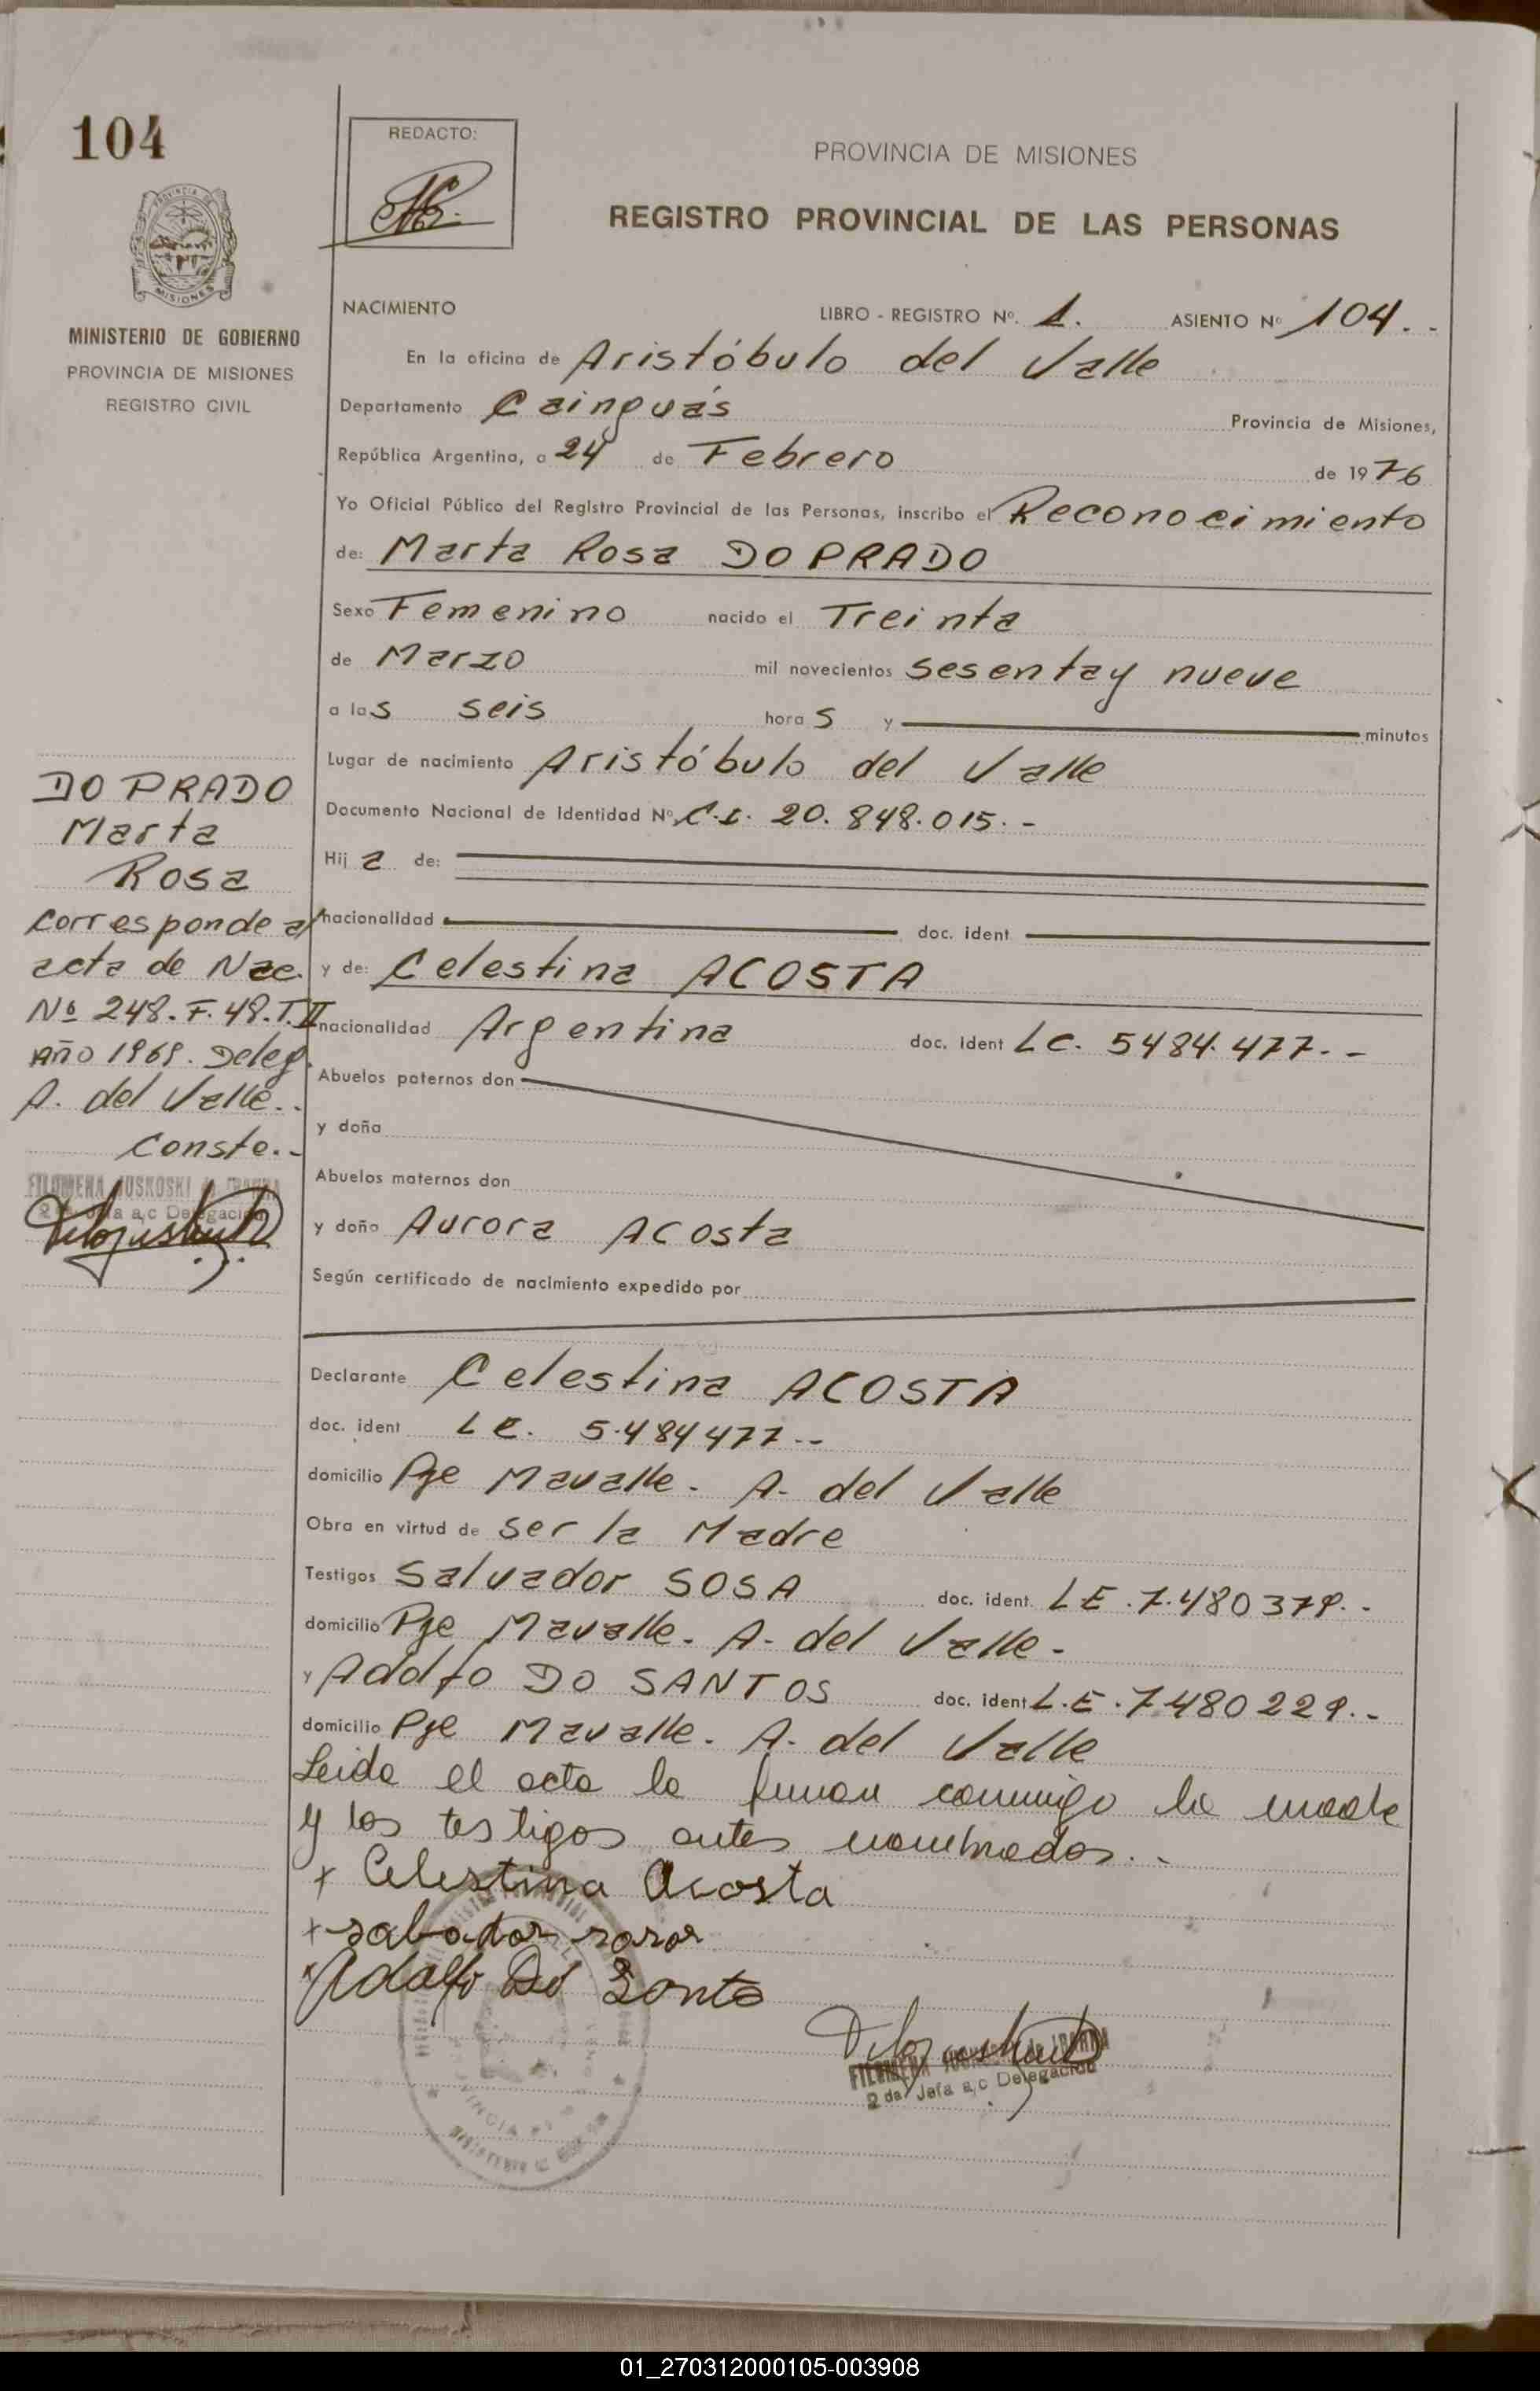 104
REDACTO:
PROVINCIA DE MISIONES
REGISTRO PROVINCIAL DE LAS PERSONAS
MISIONES
MINISTERIO DE GOBIERNO
PROVINCIA DE MISIONES
REGISTRO CIVIL
NACIMIENTO LIBRO - REGISTRO Nº. 1. ASIENTO Nº 104.-
En la oficina de Aristóbulo del Valle
Departamento Cainguás Provincia de Misiones,
República Argentina, a 24 de Febrero de 1976
Yo Oficial Público del Registro Provincial de las Personas, inscribo el Reconocimiento
de: Marta Rosa DO PRADO
Sexo Femenino nacido el Treinta
de Marzo mil novecientos sesenta y nueve
a las seis horas y minutos
Lugar de nacimiento Aristóbulo del Valle
Documento Nacional de Identidad Nº C.I. 20.848.015.-
Hija de:
nacionalidad doc. ident
y de: Celestina ACOSTA
nacionalidad Argentina doc. ident LC. 5484.477.-
Abuelos paternos don
y doña
Abuelos maternos don
y doña Aurora Acosta
Según certificado de nacimiento expedido por
DO PRADO
Marta
Rosa
corresponde al
acta de Nac.
Nº 248.F.48.T.II
Año 1969. Deleg.
A. del Valle..
Conste.-
FILOMENA JUSKOSKI de IBARRA
2da Jefa a/c Delegación
Declarante Celestina ACOSTA
doc. ident LC. 5.484477.-
domicilio Pje Mavalle. A. del Valle
Obra en virtud de ser la Madre
Testigos Salvador SOSA doc. ident. LE.7.480379.-
domicilio Pje Mavalle. A. del Valle.
y Adolfo DO SANTOS doc. ident L.E.7480229.-
domicilio Pje Mavalle. A. del Valle
Leida el acta la firman conmigo la madre
y los testigos antes nombrados.-
+ Celestina Acosta
+ sabador sosa
x Adolfo Do Santo
FILOMENA JUSKOSKI de IBARRA
2da Jefa a/c Delegación
01_270312000105-003908